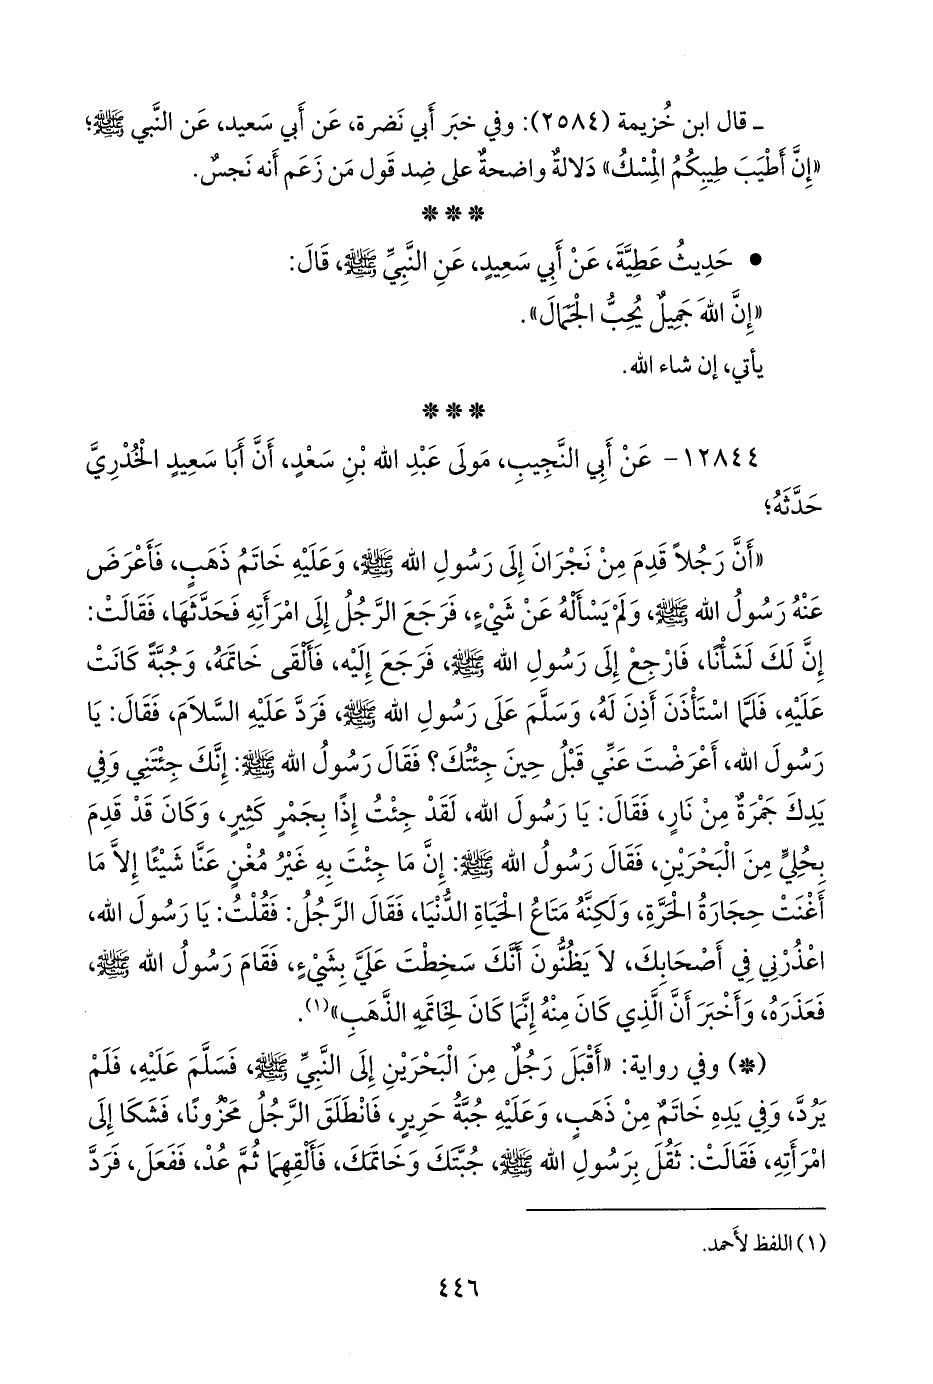 ـ قال ابن خُزيمة (٢٥٨٤): وفي خبَر أَبي نَضرة، عَن أَبي سَعيد، عَن النَّبي ﷺ؛
«إِنَّ أَطْيَبَ طِيبِكُمُ المِسْكُ» دَلالةٌ واضحةٌ على ضِد قَول مَن زَعَم أَنه نَجسٌ.
* * *
• حَدِيثُ عَطِيَّةَ، عَنْ أَبِي سَعِيدٍ، عَنِ النَّبِيِّ ﷺ، قَالَ:
«إِنَّ اللهَ جَمِيلٌ يُحِبُّ الْجَمَالَ».
يأتي، إن شاء الله.
* * *
١٢٨٤٤- عَنْ أَبِي النَّجِيبِ، مَولَى عَبْدِ الله بْنِ سَعْدٍ، أَنَّ أَبَا سَعِيدٍ الْخُدْرِيَّ
حَدَّثَهُ؛
«أَنَّ رَجُلاً قَدِمَ مِنْ نَجْرَانَ إِلَى رَسُولِ الله ﷺ، وَعَلَيْهِ خَاتَمُ ذَهَبٍ، فَأَعْرَضَ
عَنْهُ رَسُولُ الله ﷺ، وَلَمْ يَسْأَلْهُ عَنْ شَيْءٍ، فَرَجَعَ الرَّجُلُ إِلَى امْرَأَتِهِ فَحَدَّثَهَا، فَقَالَتْ:
إِنَّ لَكَ لَشَأْنًا، فَارْجِعْ إِلَى رَسُولِ الله ﷺ، فَرَجَعَ إِلَيْهِ، فَأَلْقَى خَاتَمَهُ، وَجُبَّةً كَانَتْ
عَلَيْهِ، فَلَمَّا اسْتَأْذَنَ أَذِنَ لَهُ، وَسَلَّمَ عَلَى رَسُولِ الله ﷺ، فَرَدَّ عَلَيْهِ السَّلاَمَ، فَقَالَ: يَا
رَسُولَ الله، أَعْرَضْتَ عَنِّي قَبْلُ حِينَ جِئْتُكَ؟ فَقَالَ رَسُولُ الله ﷺ: إِنَّكَ جِئْتَنِي وَفِي
يَدِكَ جَمْرَةٌ مِنْ نَارٍ، فَقَالَ: يَا رَسُولَ الله، لَقَدْ جِئْتُ إِذًا بِجَمْرٍ كَثِيرٍ، وَكَانَ قَدْ قَدِمَ
بِحُلِيٍّ مِنَ الْبَحْرَيْنِ، فَقَالَ رَسُولُ الله ﷺ: إِنَّ مَا جِئْتَ بِهِ غَيْرُ مُغْنٍ عَنَّا شَيْئًا إِلاَّ مَا
أَغْنَتْ حِجَارَةُ الْحَرَّةِ، وَلَكِنَّهُ مَتَاعُ الْحَيَاةِ الدُّنْيَا، فَقَالَ الرَّجُلُ: فَقُلْتُ: يَا رَسُولَ الله،
اعْذُرْنِي فِي أَصْحَابِكَ، لاَ يَظُنُّونَ أَنَّكَ سَخِطْتَ عَلَيَّ بِشَيْءٍ، فَقَامَ رَسُولُ الله ﷺ،
فَعَذَرَهُ، وَأَخْبَرَ أَنَّ الَّذِي كَانَ مِنْهُ إِنَّمَا كَانَ لِخَاتَمِهِ الذَّهَبِ»(١).
(*) وفي رواية: «أَقْبَلَ رَجُلٌ مِنَ الْبَحْرَيْنِ إِلَى النَّبِيِّ ﷺ، فَسَلَّمَ عَلَيْهِ، فَلَمْ
يَرُدَّ، وَفِي يَدِهِ خَاتَمٌ مِنْ ذَهَبٍ، وَعَلَيْهِ جُبَّةُ حَرِيرٍ، فَانْطَلَقَ الرَّجُلُ مَحْزُونًا، فَشَكَا إِلَى
امْرَأَتِهِ، فَقَالَتْ: ثَقُلَ بِرَسُولِ الله ﷺ، جُبَّتَكَ وَخَاتَمَكَ، فَأَلْقِهِمَا ثُمَّ عُدْ، فَفَعَلَ، فَرَدَّ
(١) اللفظ لأَحمد.
٤٤٦